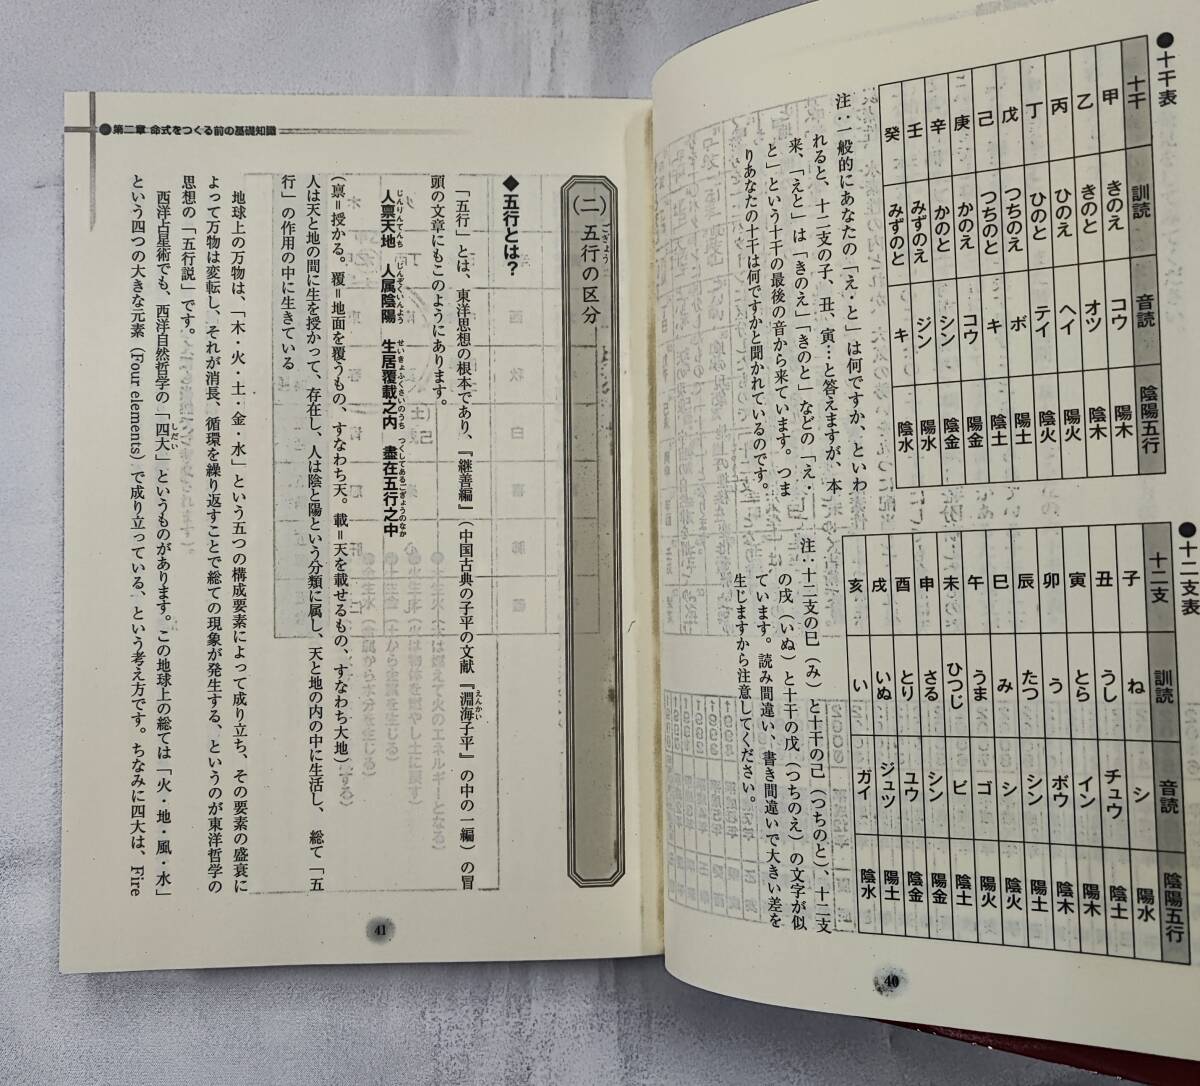 ●十干表
十干 訓読 音読 陰陽五行
甲 きのえ コウ 陽木
乙 きのと オツ 陰木
丙 ひのえ ヘイ 陽火
丁 ひのと テイ 陰火
戊 つちのえ ボ 陽土
己 つちのと キ 陰土
庚 かのえ コウ 陽金
辛 かのと シン 陰金
壬 みずのえ ジン 陽水
癸 みずのと キ 陰水
注:一般的にあなたの「え・と」は何ですか、といわ
れると、十二支の子、丑、寅…と答えますが、本
来、「えと」は「きのえ」「きのと」などの「え・
と」という十干の最後の音から来ています。つま
りあなたの十干は何ですかと聞かれているのです。
●十二支表
十二支 訓読 音読 陰陽五行
子 ね シ 陽水
丑 うし チュウ 陰土
寅 とら イン 陽木
卯 う ボウ 陰木
辰 たつ シン 陽土
巳 み シ 陰火
午 うま ゴ 陽火
未 ひつじ ビ 陰土
申 さる シン 陽金
酉 とり ユウ 陰金
戌 いぬ ジュツ 陽土
亥 い ガイ 陰水
注:十二支の巳(み)と十干の己(つちのと)、十二支
の戌(いぬ)と十干の戊(つちのえ)の文字が似
ています。読み間違い、書き間違いで大きい差を
生じますから注意してください。
40
●第二章 命式をつくる前の基礎知識
(二)五行の区分
ごぎょう
◆五行とは?
「五行」とは、東洋思想の根本であり、『継善編』(中国古典の子平の文献『淵海子平』の中の一編)の冒
えんかい
頭の文章にもこのようにあります。
じんりんてんち じんぞくいんよう せいきょふくさいのうち つくしてあるごぎょうのなか
人稟天地 人属陰陽 生居覆載之内 盡在五行之中
(稟=授かる。覆=地面を覆うもの、すなわち天。載=天を載せるもの、すなわち大地)
人は天と地の間に生を授かって、存在し、人は陰と陽という分類に属し、天と地の内の中に生活し、総て「五
行」の作用の中に生きている
地球上の万物は、「木・火・土・金・水」という五つの構成要素によって成り立ち、その要素の盛衰に
よって万物は変転し、それが消長、循環を繰り返すことで総ての現象が発生する、というのが東洋哲学の
思想の「五行説」です。
西洋占星術でも、西洋自然哲学の「四大」というものがあります。この地球上の総ては「火・地・風・水」
しだい
という四つの大きな元素(Four elements)で成り立っている、という考え方です。ちなみに四大は、Fire
41